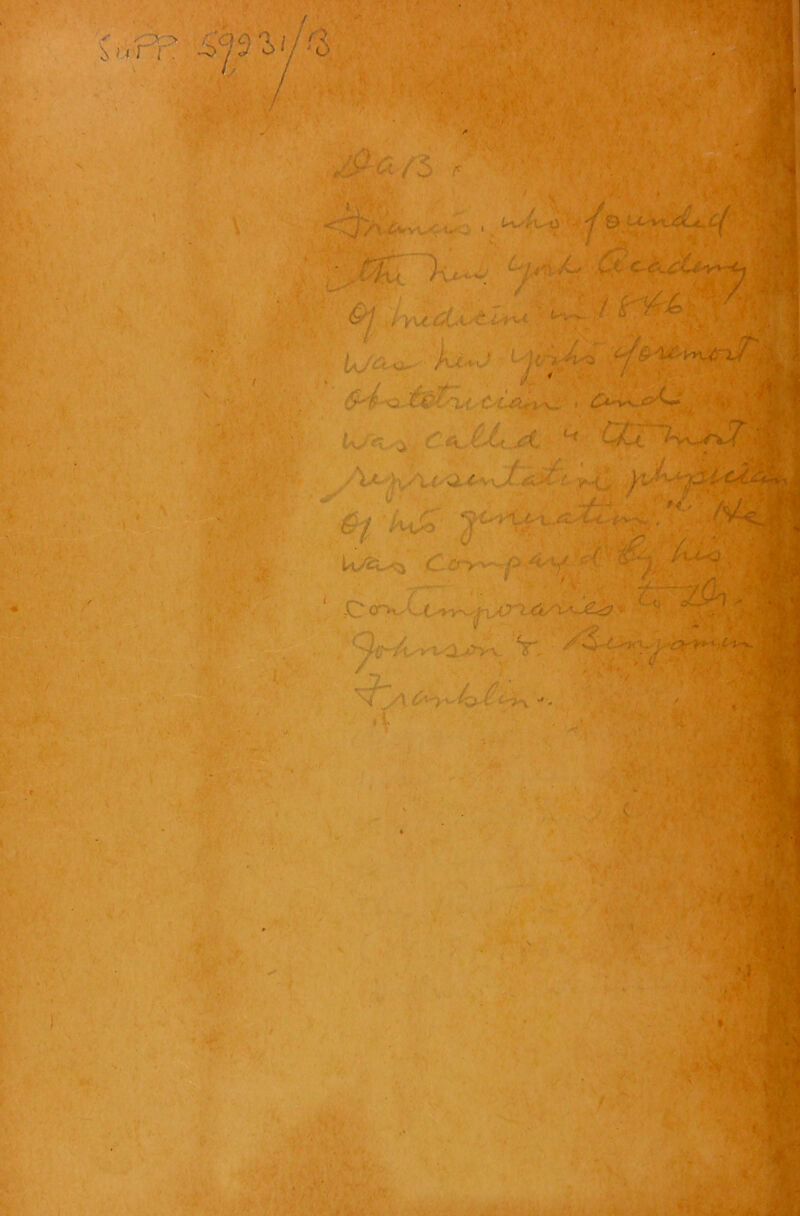 Supp. 59931/B
Francis, who founded
The New York Academy
Of medicine in 1846
Was New York's foremost
Obstetrician, and
Was called "The most
Representative physician
Of his generation." He
Was compared by his
Contemporaries to Dr.
Johnson & Benjamin
Franklin.